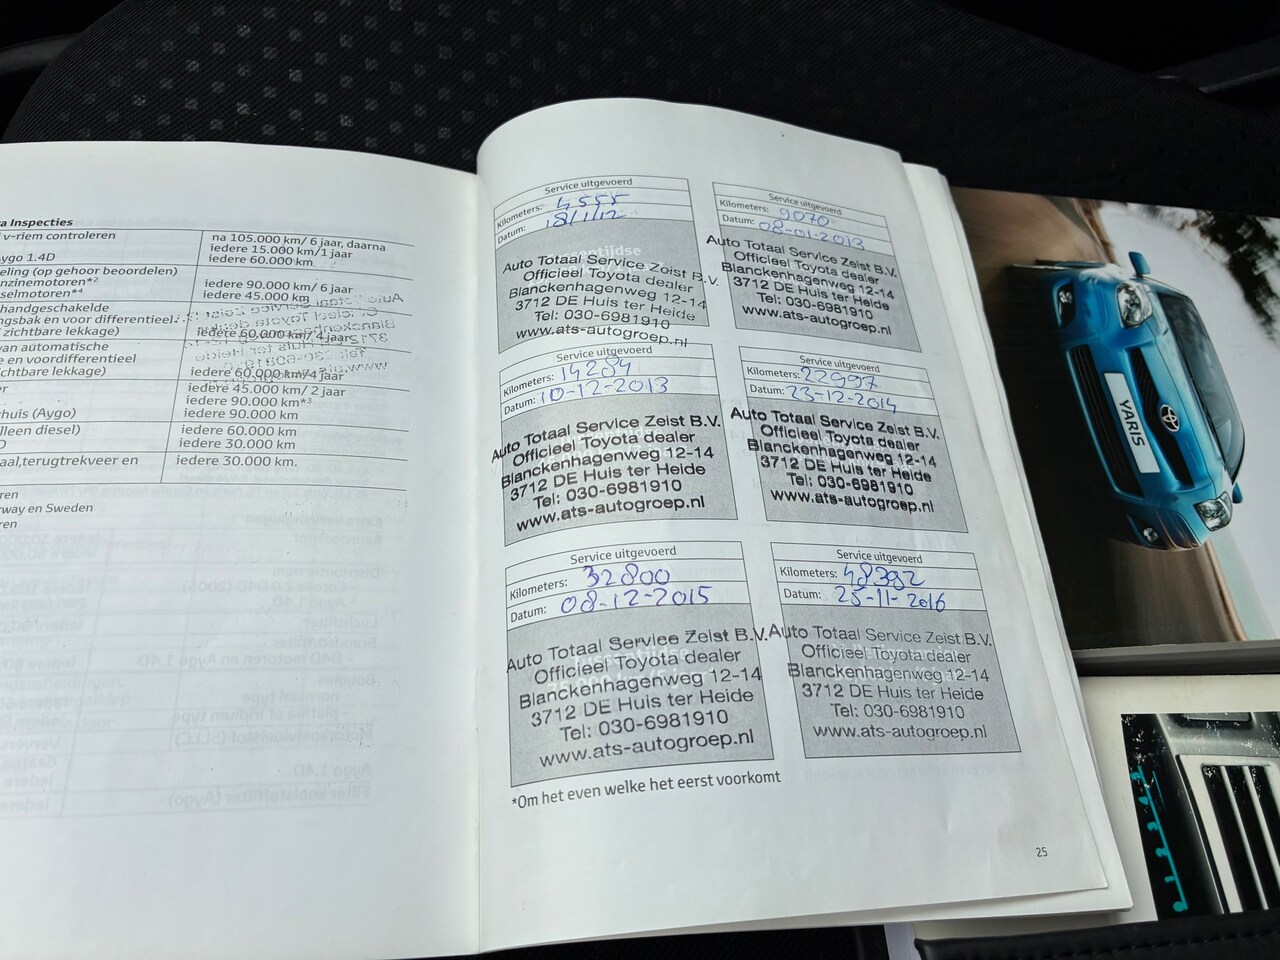 a Inspecties
v-riem controleren
na 105.000 km/ 6 jaar, daarna
iedere 15.000 km/1 jaar
Aygo 1.4D
iedere 60.000 km
eling (op gehoor beoordelen)
nzinemotoren*2
iedere 90.000 km/ 6 jaar
selmotoren*4
iedere 45.000 km
handgeschakelde
ngsbak en voor differentieel.
zichtbare lekkage)
iedere 60.000 km/ 4 jaar
van automatische
e en voordifferentieel
zichtbare lekkage)
iedere 60.000 km/4 jaar
er
iedere 45.000 km/ 2 jaar
iedere 90.000 km*3
rhuis (Aygo)
iedere 90.000 km
lleen diesel)
iedere 60.000 km
D
iedere 30.000 km
aal,terugtrekveer en
iedere 30.000 km.
ren
rway en Sweden
ren
Service uitgevoerd
Kilometers: 4555
Datum: 18/1/12
Auto Totaal Service Zeist B.V.
Officieel Toyota dealer
Blanckenhagenweg 12-14
3712 DE Huis ter Heide
Tel: 030-6981910
www.ats-autogroep.nl
Service uitgevoerd
Kilometers: 9070
Datum: 08-01-2013
Auto Totaal Service Zeist B.V.
Officieel Toyota dealer
Blanckenhagenweg 12-14
3712 DE Huis ter Heide
Tel: 030-6981910
www.ats-autogroep.nl
Service uitgevoerd
Kilometers: 14284
Datum: 10-12-2013
Auto Totaal Service Zeist B.V.
Officieel Toyota dealer
Blanckenhagenweg 12-14
3712 DE Huis ter Heide
Tel: 030-6981910
www.ats-autogroep.nl
Service uitgevoerd
Kilometers: 22997
Datum: 23-12-2014
Auto Totaal Service Zeist B.V.
Officieel Toyota dealer
Blanckenhagenweg 12-14
3712 DE Huis ter Heide
Tel: 030-6981910
www.ats-autogroep.nl
Service uitgevoerd
Kilometers: 32800
Datum: 08-12-2015
Auto Totaal Service Zeist B.V.
Officieel Toyota dealer
Blanckenhagenweg 12-14
3712 DE Huis ter Heide
Tel: 030-6981910
www.ats-autogroep.nl
Service uitgevoerd
Kilometers: 48382
Datum: 25-11-2016
Auto Totaal Service Zeist B.V.
Officieel Toyota dealer
Blanckenhagenweg 12-14
3712 DE Huis ter Heide
Tel: 030-6981910
www.ats-autogroep.nl
*Om het even welke het eerst voorkomt
25
YARIS